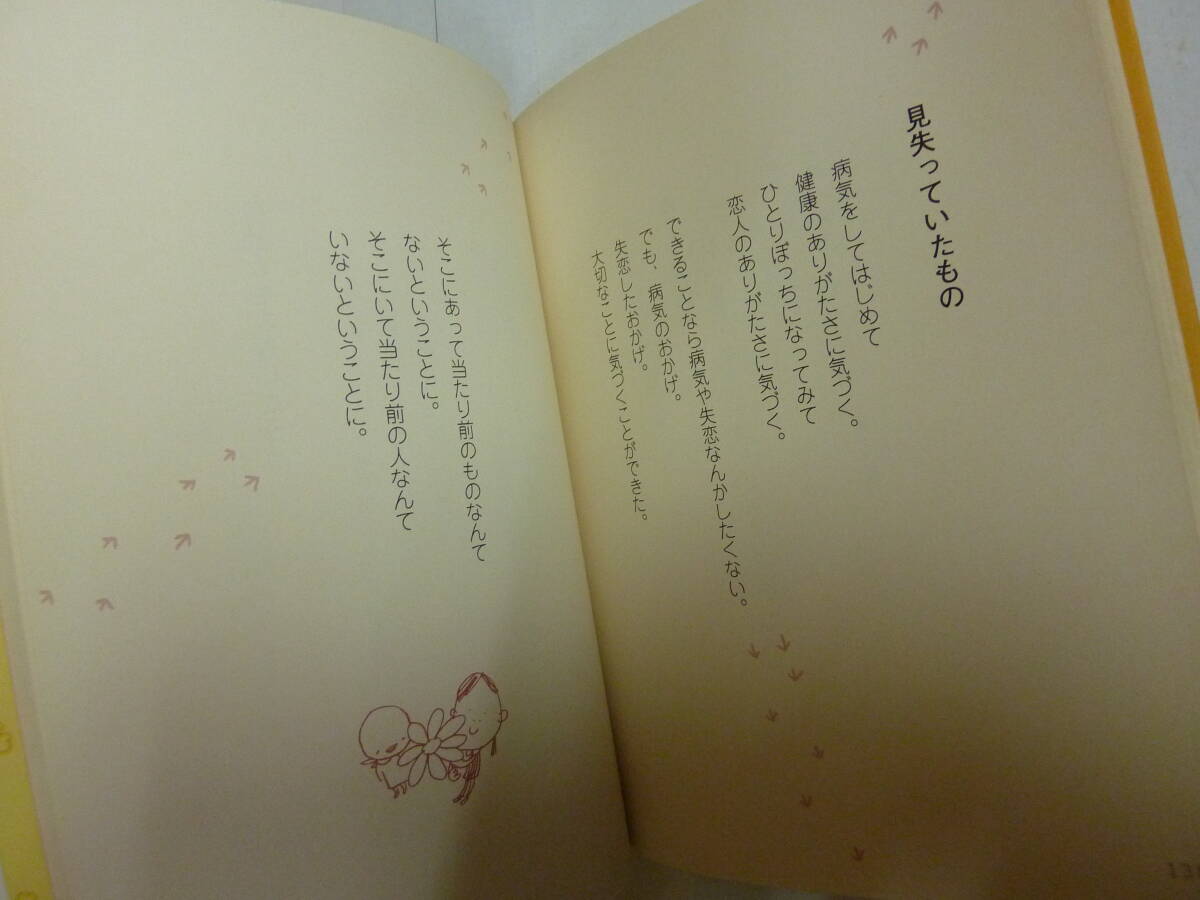 見失っていたもの
病気をしてはじめて
健康のありがたさに気づく。
ひとりぼっちになってみて
恋人のありがたさに気づく。
できることなら病気や失恋なんかしたくない。
でも、病気のおかげ。
失恋したおかげ。
大切なことに気づくことができた。
そこにあって当たり前のものなんて
ないということに。
そこにいて当たり前の人なんて
いないということに。